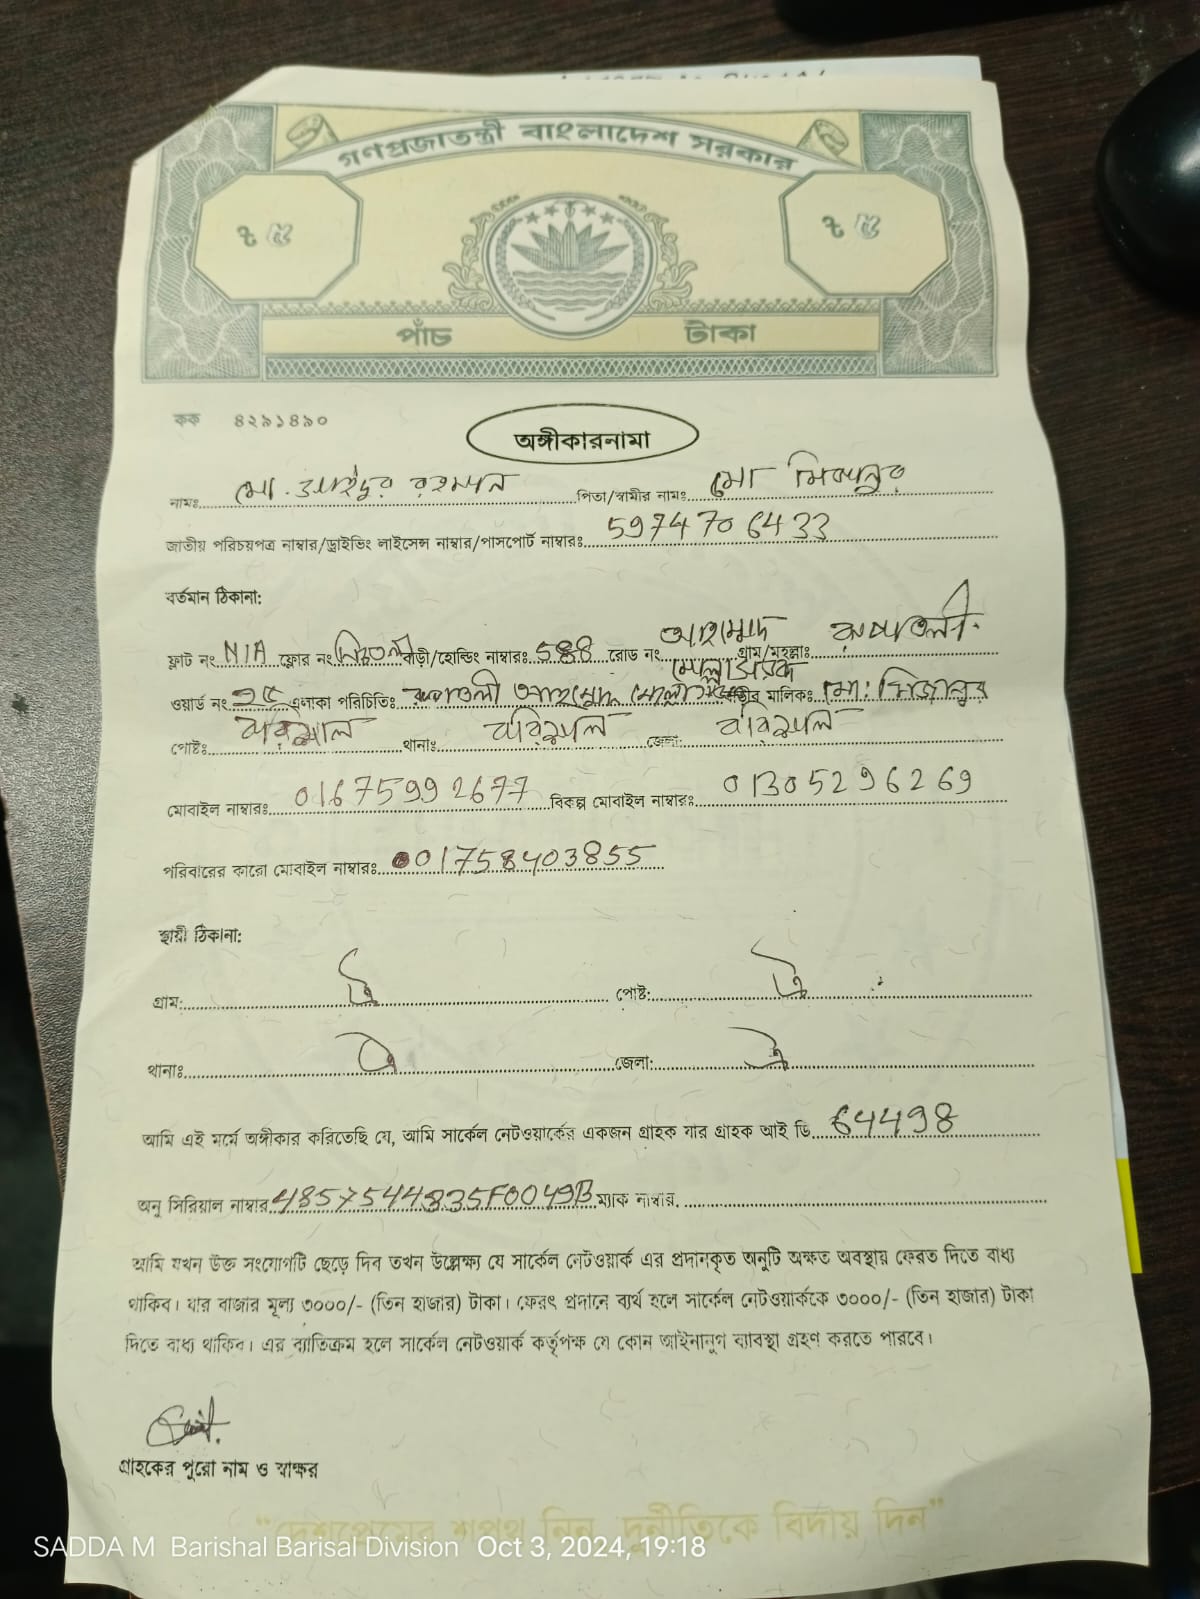 গণপ্রজাতন্ত্রী বাংলাদেশ সরকার
৳ ৫ ৳ ৫
পাঁচ টাকা
কক ৪২৯১৪৯০
অঙ্গীকারনামা
নামঃ মো. রহমান পিতা/স্বামীর নামঃ মো মিজানুর
জাতীয় পরিচয়পত্র নাম্বার/ড্রাইভিং লাইসেন্স নাম্বার/পাসপোর্ট নাম্বারঃ 5974706433
বর্তমান ঠিকানা:
ফ্লাট নং N/A ফ্লোর নং বাড়ী/হোল্ডিং নাম্বারঃ রোড নং আহম্মদ মোল্লা সড়ক গ্রাম/মহল্লাঃ
ওয়ার্ড নং ২৫ এলাকা পরিচিতিঃ আহম্মদ মোল্লা মালিকঃ মো: মিজানুর
পোষ্টঃ বরিশাল থানাঃ বরিশাল জেলা: বরিশাল
মোবাইল নাম্বারঃ 01675992677 বিকল্প মোবাইল নাম্বারঃ 01305296269
পরিবারের কারো মোবাইল নাম্বারঃ 01758403855
স্থায়ী ঠিকানা:
গ্রাম: ঐ পোষ্ট: ঐ
থানাঃ ঐ জেলা: ঐ
আমি এই মর্মে অঙ্গীকার করিতেছি যে, আমি সার্কেল নেটওয়ার্কের একজন গ্রাহক যার গ্রাহক আই ডি 64498
অনু সিরিয়াল নাম্বার 48575444835F0049B ম্যাক নাম্বার.
আমি যখন উক্ত সংযোগটি ছেড়ে দিব তখন উল্লেক্ষ্য যে সার্কেল নেটওয়ার্ক এর প্রদানকৃত অনুটি অক্ষত অবস্থায় ফেরত দিতে বাধ্য
থাকিব। যার বাজার মূল্য ৩০০০/- (তিন হাজার) টাকা। ফেরৎ প্রদানে ব্যর্থ হলে সার্কেল নেটওয়ার্ককে ৩০০০/- (তিন হাজার) টাকা
দিতে বাধ্য থাকিব। এর ব্যাতিক্রম হলে সার্কেল নেটওয়ার্ক কর্তৃপক্ষ যে কোন আইনানুগ ব্যাবস্থা গ্রহণ করতে পারবে।
গ্রাহকের পুরো নাম ও স্বাক্ষর
"দেশপ্রেমের শপথ নিন, দুর্নীতিকে বিদায় দিন"
SADDA M Barishal Barisal Division Oct 3, 2024, 19:18